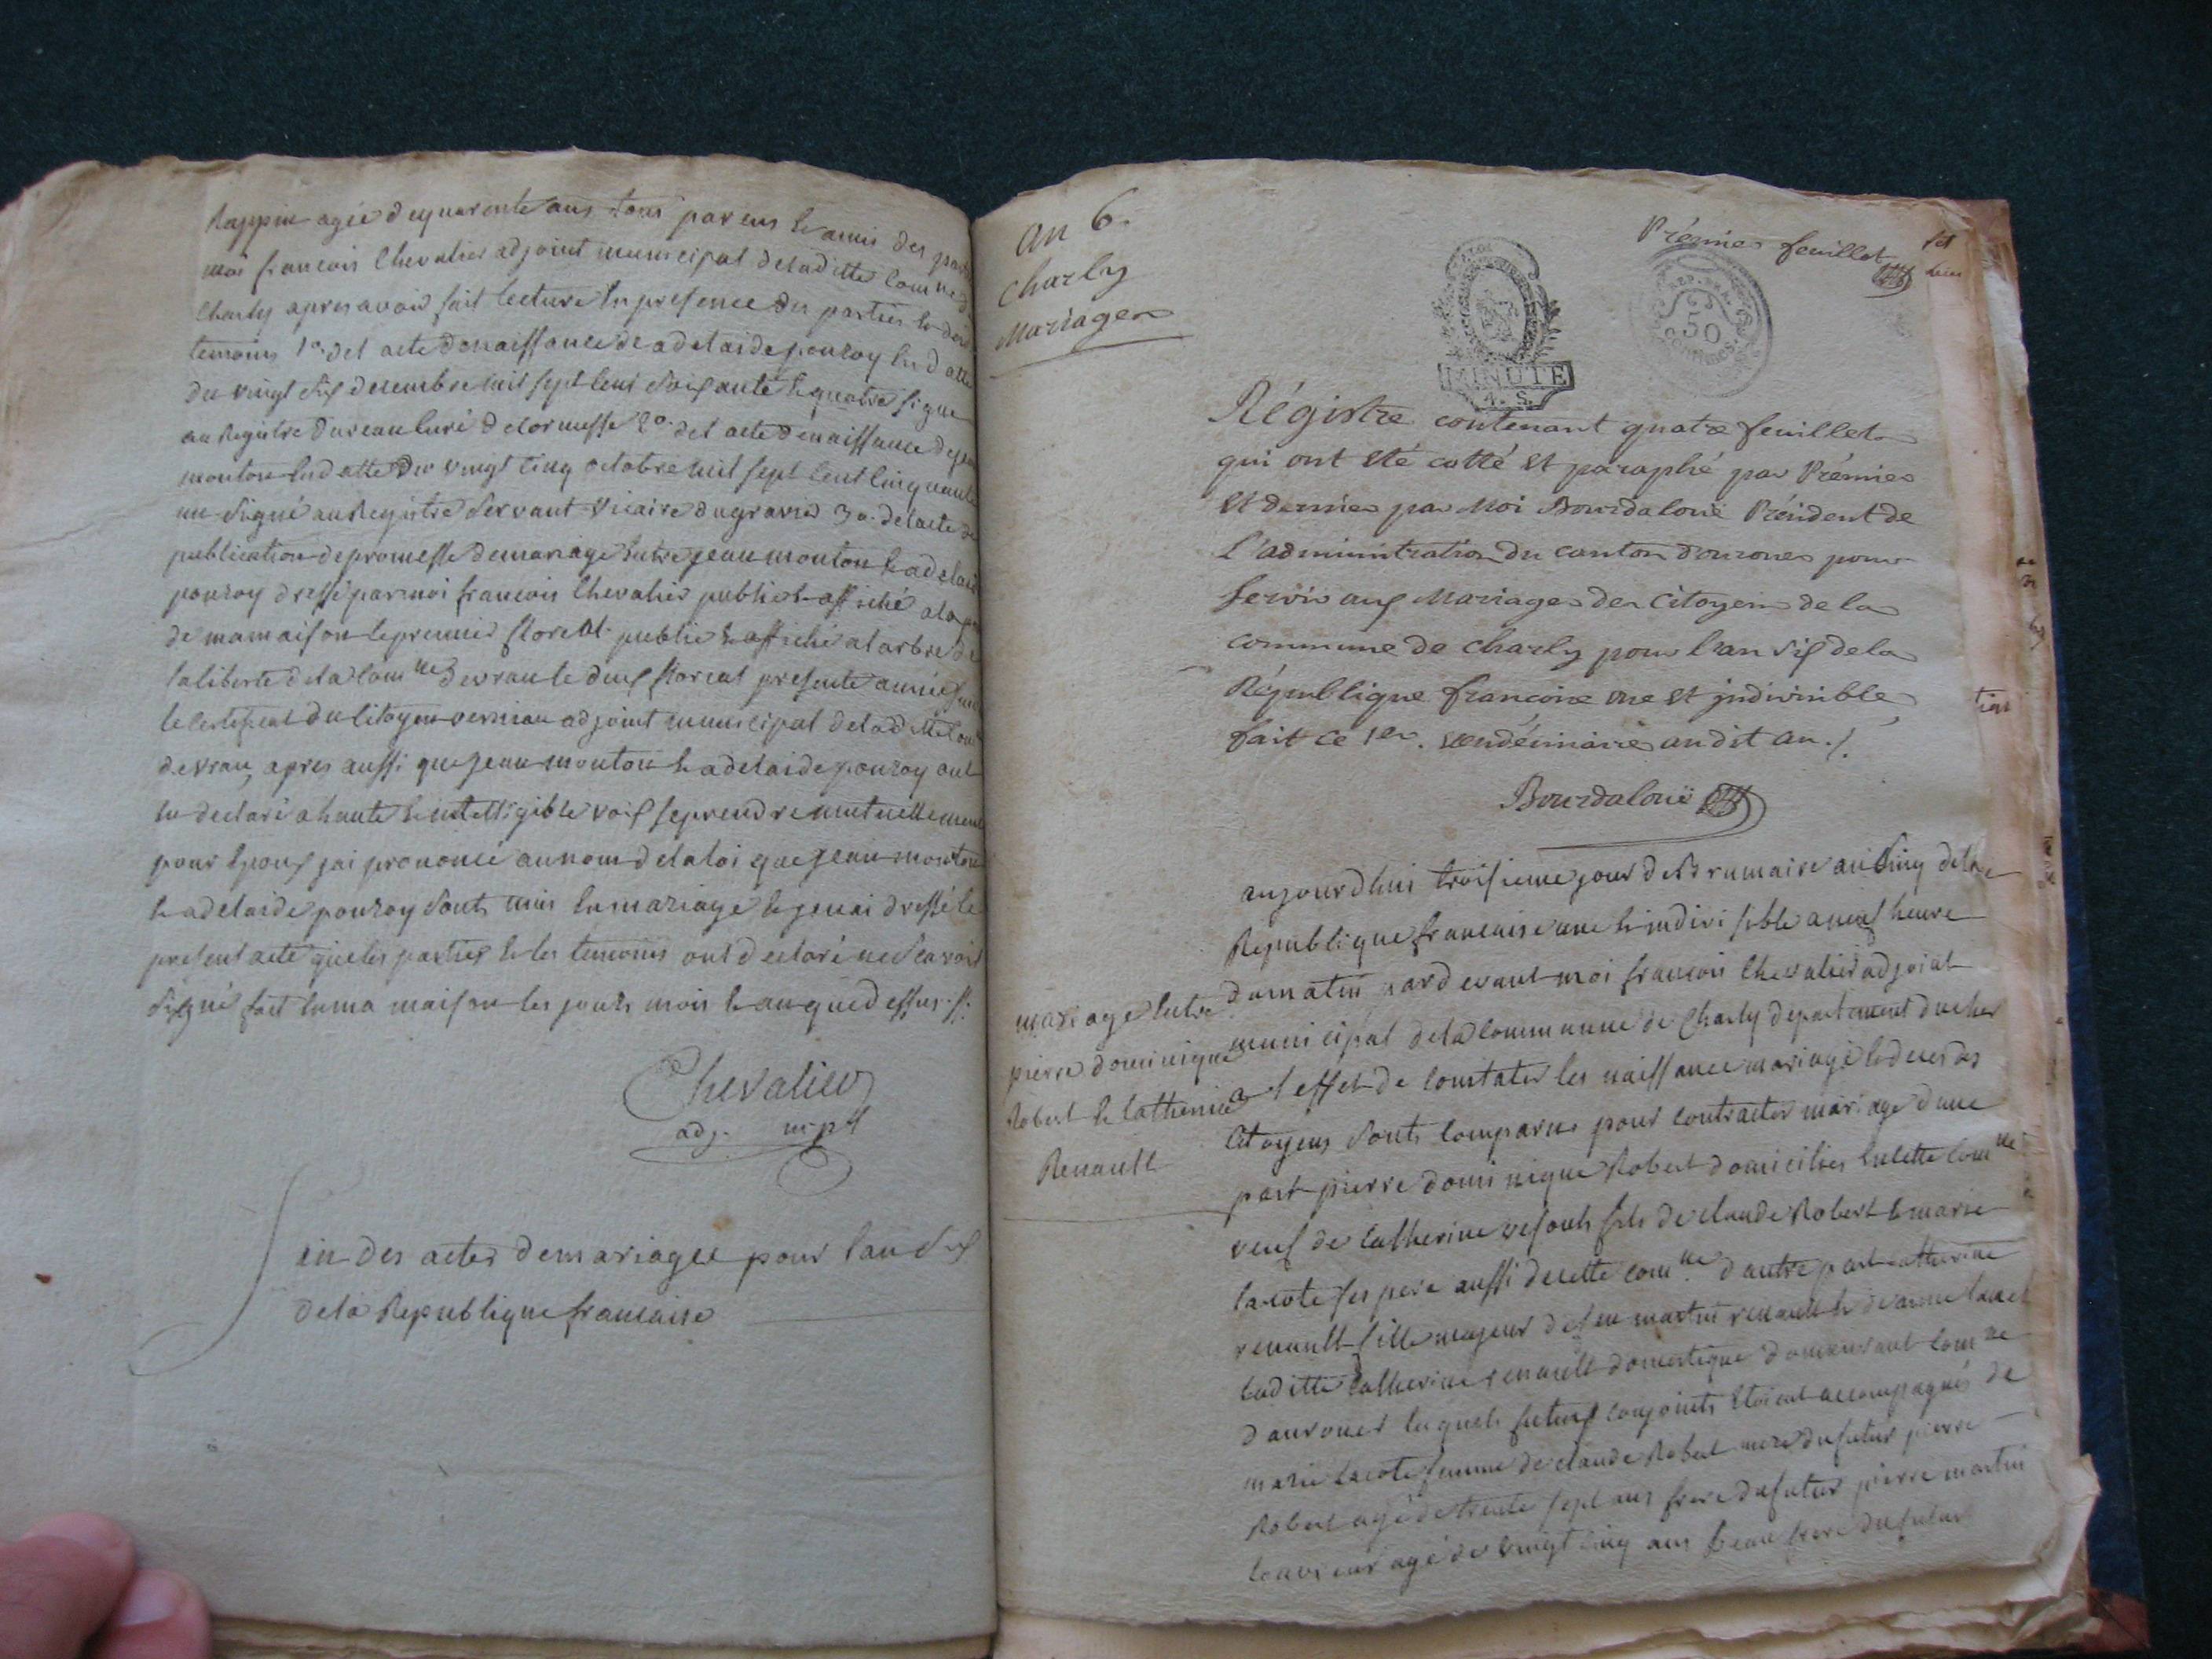 Rappin agée dequarente ans tous parens & amis des
moi francois Chevalier adjoint municipal deladitte
Charly apres avoir fait lecture En presence des parties &
temoins 1º del acte denaissance de adelaide pouzoy En datte
du vingt Six decembre mil sept Cent Soixante & quatre signé
au Registre 2º. del acte denaissance
mouton End atte du vingt Cinq octobre mil sept Cent Cinquante
un Signé au Registre Servant Vicaire dugravier 3º. delacte de
publication depromesse demariage Entre jean mouton & adelaide
pouzoy dressé parmoi francois Chevalier publié & affiché
de mamaison lepremier floreal publié & affiché alarbre de
laliberte dela Com ne floreal presente année
le Certificat du Citoyen adjoint municipal
apres aussi que jean mouton & adelaide pouzoy ont
declaré a haute & intelligible voix seprendre mutuellement
pour Epoux jai prononcé aunom delaloi que jean mouton
& adelaide pouzoy Sonts unis En mariage & jenai dressé le
present acte queles parties & les temoins ont declaré ne Scavoir
Signé fait Enma maison les jours mois & an quedessus
Chevalier
adj. mpl
fin des actes demariages pour lan Six
dela Republique francaise
an 6.
Charly
Mariages
Prémier feuillet
MINUTE
4. S.
REP. FRA.
50
CENTIMES
Régistre contenant quatre feuillets
qui ont été cotté et paraphé par Prémier
et dernier par Moi Bourdaloüe Président de
l'administration du canton d'ourouer pour
servir aux Mariages des Citoyens de la
commune de Charly pour l'an six dela
République françoise une et indivisible
fait ce 1er. vendémiaire audit an ./.
Bourdaloüe
mariage Entre
pierre dominique
Robert & Catherine
Renault
aujourdhui troisieme jour deBrumaire an dela
Republique francaise une & indivisible aneuf heure
dumatin pardevant moi francois Chevalier adjoint
municipal dela Commune de Charly departement ducher
a l effet de Constater les naissance mariage & deces des
Citoyens Sonts Comparus pour contracter mariage dune
part pierre dominique Robert domicilier En cette Com ne
veuf de Catherine fils de claude Robert & marie
lacote ses pere aussi decette com ne d autre part catherine
renault fille majeur defeu martin renault & de anne
laditte Catherine renault domestique demeurant Com ne
dourouer lesquels futurs conjoints Etoient accompagnés de
marie lacote femme de claude Robert mere dufutur pierre
Robert agé de trente sept ans frere dufutur pierre martin
agé de vingt Cinq ans beau frere dufutur